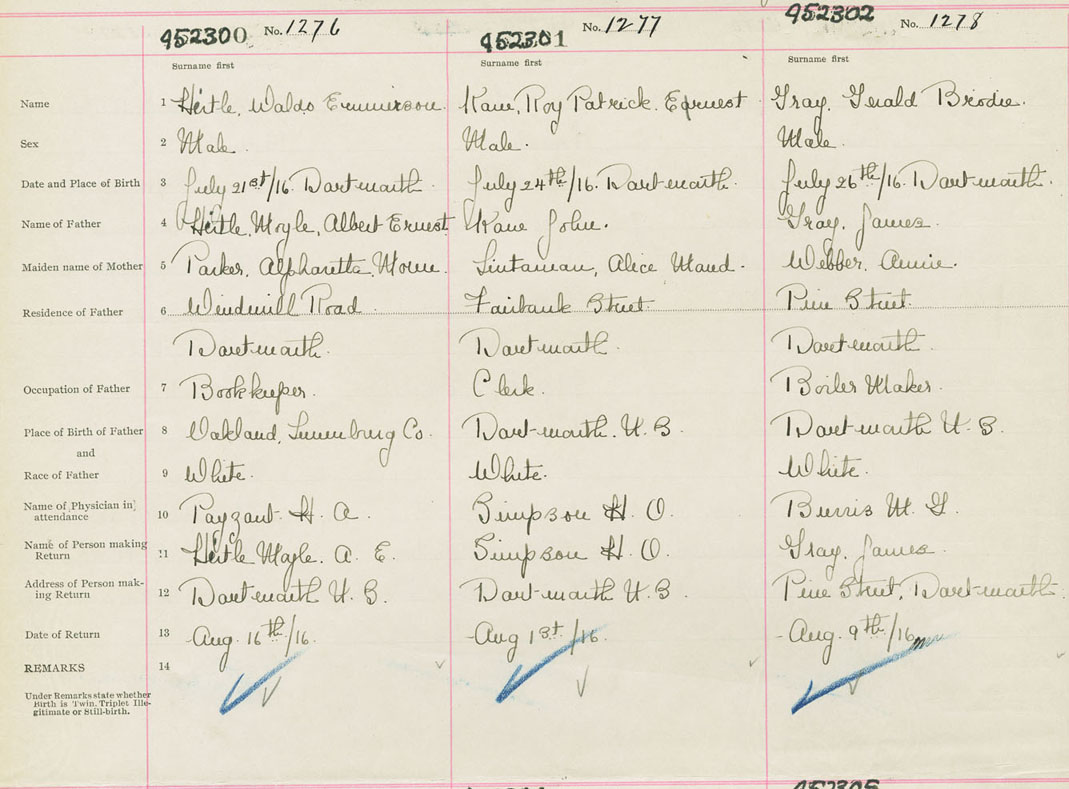 452300 No. 1276
452301 No. 1277
452302 No. 1278
Surname first Surname first Surname first
Name 1 Heitle, Waldo Emmerson. Kane, Roy Patrick Earnest Gray, Gerald Brodie.
Sex 2 Male. Male. Male.
Date and Place of Birth 3 July 21st/16. Dartmouth. July 24th/16. Dartmouth. July 26th/16. Dartmouth.
Name of Father 4 Heitle, Moyle, Albert Ernest Kane John. Gray, James.
Maiden name of Mother 5 Parker, Alpharetta, Alice Maud. Webber, Annie.
Residence of Father 6 Windmill Road Fairbank Street. Pine Street.
Dartmouth. Dartmouth. Dartmouth.
Occupation of Father 7 Bookkeeper. Clerk. Boiler Maker.
Place of Birth of Father 8 Oakland, Lunenburg Co. Dartmouth. N. S. Dartmouth N. S.
and
Race of Father 9 White. White. White.
Name of Physician in attendance 10 Payzant H. A. Simpson H. O. Burris M. G.
Name of Person making Return 11 Heitle Moyle. A. E. Simpson H. O. Gray, James.
Address of Person mak-
ing Return 12 Dartmouth N. S. Dartmouth N. S. Pine Street, Dartmouth.
Date of Return 13 Aug. 16th/16. Aug 1st/16. Aug. 9th/16
REMARKS 14
Under Remarks state whether
Birth is Twin, Triplet Ille-
gitimate or Still-birth.
452305